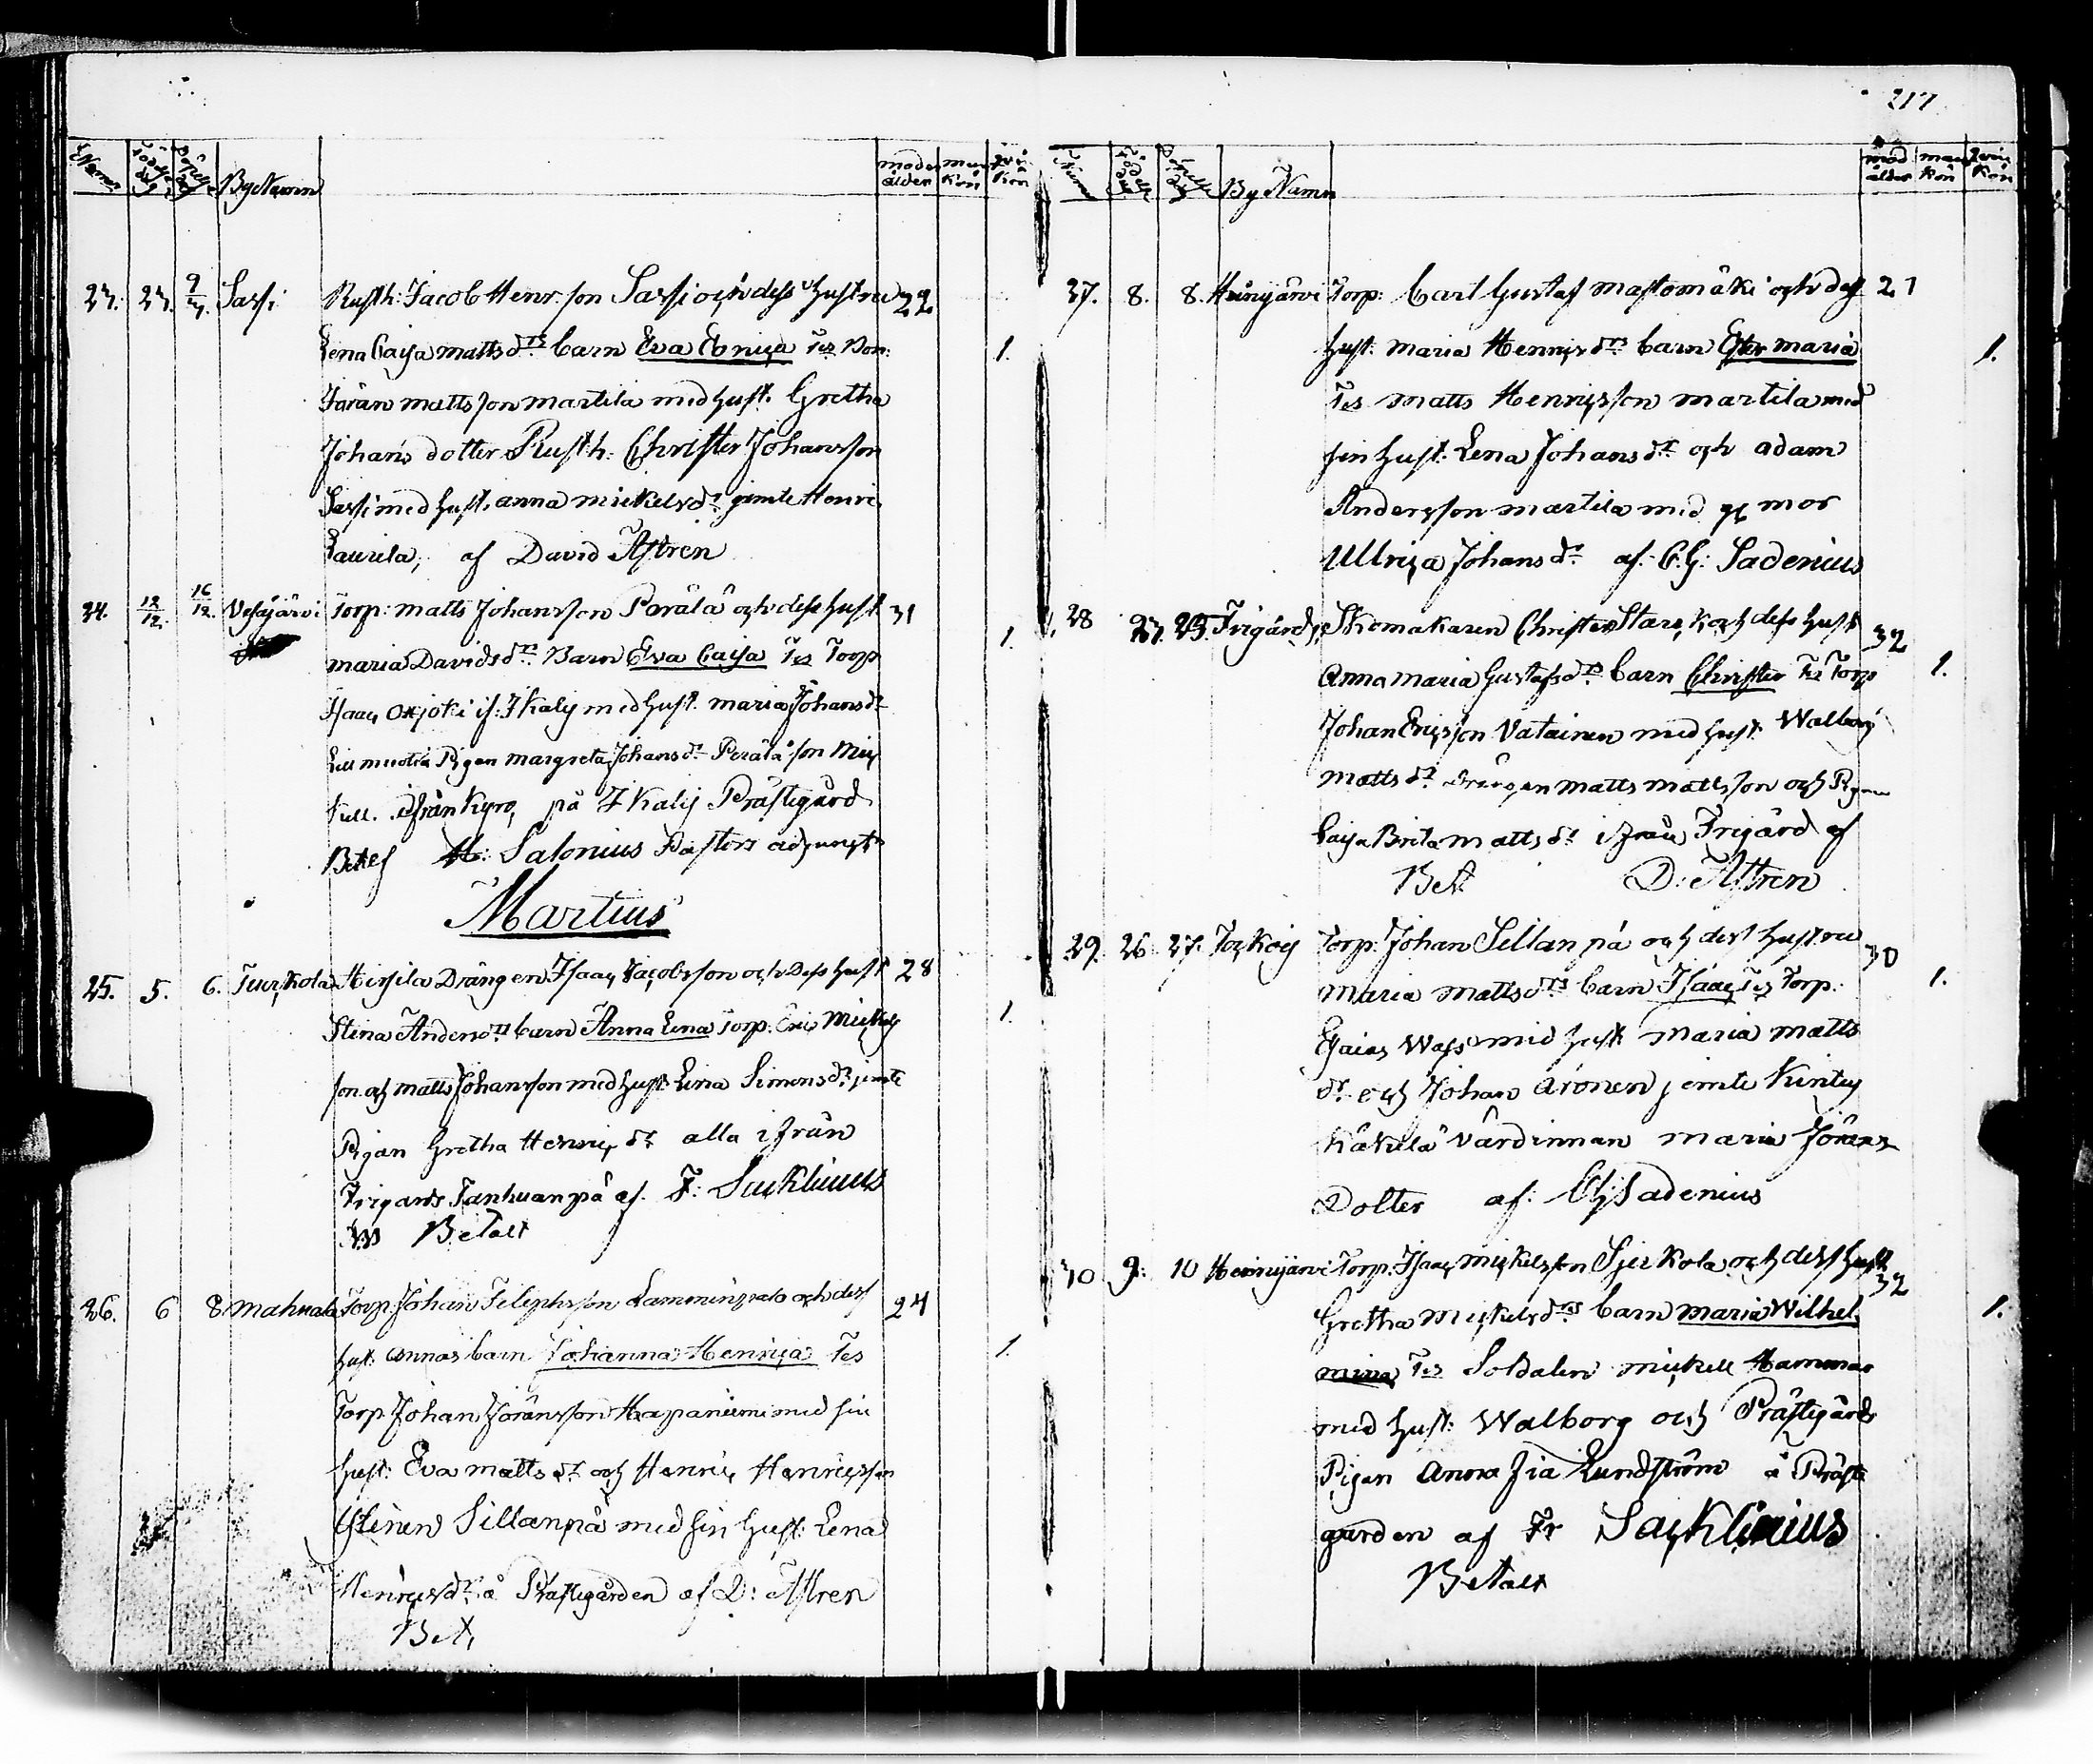 217
Numer Födelse dag Döpelse dag By Namn moder ålder man kön qvin kön
23. 23. 9/3. Sassi Rusth: Jacob Henr.son Sassi och dess Hustru 22
Lena Caisa matts drs barn Eva Erica Tes Bon: 1.
Jöran matts son martila med hust. Gretha
Johans dotter Rusth. Christer Johansson
Sassi med hust. anna mickels dr jemte Henric
Laurila, af David Astren
24. 12/12. 16/12. Vesajärvi Torp: matts Johansson Perälä och dess hust 31
maria Davids drs Barn Eva Caisa Tes Torp 1.
Isaac joki if: Ikalis med hust. maria Johans dr
Pigan margreta Johans dr Perälä son Mic
kell. ifrån Kyro, på Ikalis Prästgård
Salonius Pastors adjunct
Martius
25. 5. 6. Turckola Hirsila Drängen Isaac Jacobsson och Dess hust 28
Stina Anders drs barn Anna Lena Torp: Eric Mickels 1.
son och matts Johansson med hust Lena Simons dr jemte
Pigan Gretha Henric dr alla ifrån
Frigårds Tanhuanpä af. F: Sacklinius
Betalt
26. 6 8. mahnala Torp. Johan Telephsson Lamminpalo och dess 24
hust. annas barn Johanna Henrica Tes 1.
Torp. Johan Jöransson Haapaniemi med sin
hust: Eva matts dr och Henric Henricsson
Sillanpä med sin hust: Lena
Henrics dr å Prästegården af D: Astren
Bet.
Num Födelse dag Döpelse dag By Namn mod ålder man kön qvin kön
27. 8. 8. Heinijärvi Torp: Carl Gustaf mastomäki och dess 21
hust. maria Henrics drs barn Ester maria 1.
Tes matts Henricsson martila med
sin hust: Lena Johans dr och adam
Andersson martila med mor
Ullrica Johans dr af: C.G: Sadenius
28 23. 25. Frigård Skomakaren Christer Starck och dess hust 32
Anna maria Gustafs drs barn Christer Tes Torp 1.
Johan Ericsson Vatainen med hust Walborg
matts dr Drängen matts mattsson och Pigan
Caisa Brita matts dr ifrån Frigård af
Bet D: Astren
29. 26 27. Torp: Johan Sillanpä och dess hustru 30
maria matts drs barn Isaac Tes Torp: 1.
Esaias Wass med hust maria matts
dr och Johan Aronen jemte
värdinnan maria Jörans
Dotter af: CGSadenius
30 9. 10 Heinijärvi Torp: Isaac mickelsson Sjerkola och dess hust 32
Gretha mickels drs barn maria Wilhel 1.
mina, Tes Soldaten mickell Hammar
med hust: Walborg och Prästgårds
Pigan Anna fia Lundström å Präste
gården af Fr Sacklinius
Betalt